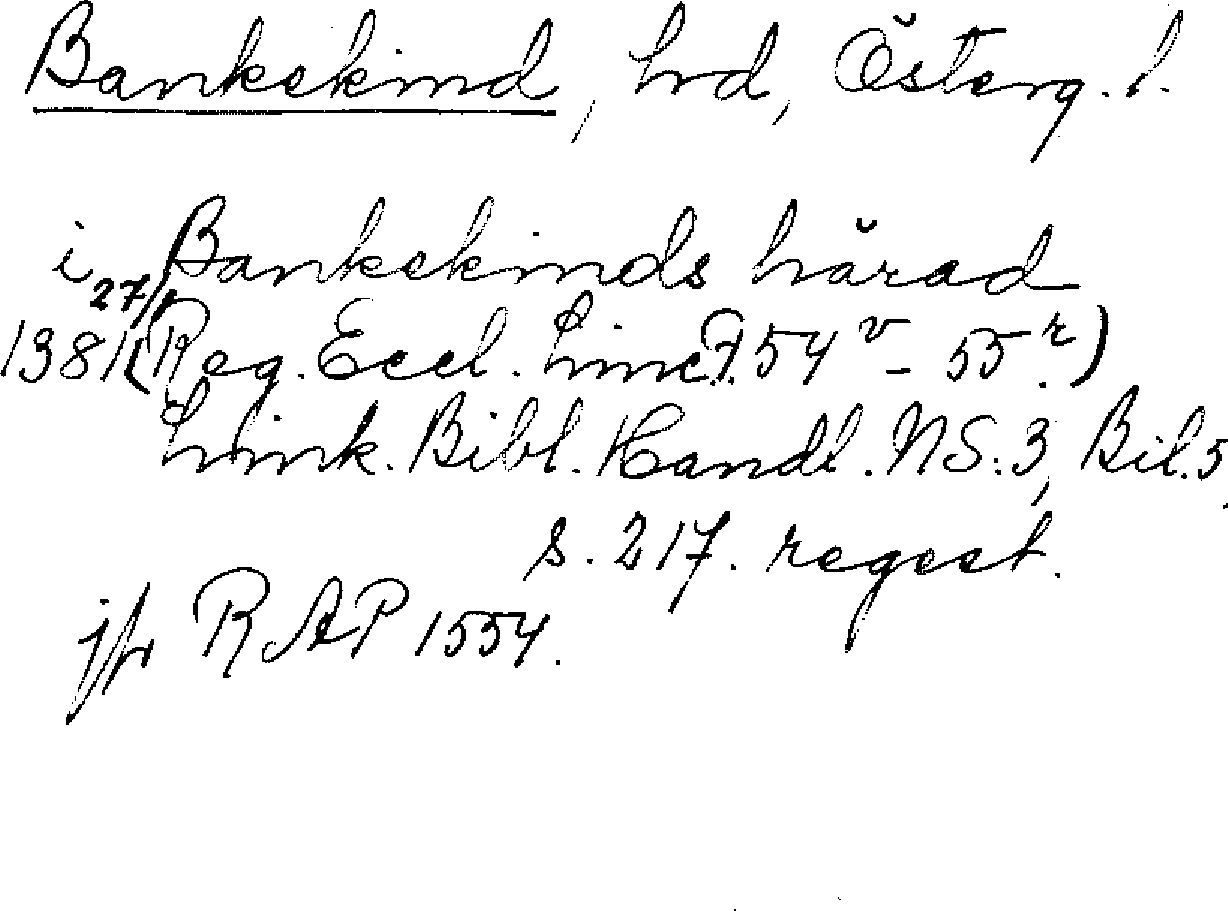 Bankekind, hrd, Österg. l.
i Bankekinds härad
27/1
1381 (Reg. Eccl. Linc. f. 54v - 55r.)
Link. Bibl. Handl. NS. 3, Bil. 5.
s. 217. regest.
jfr RAP 1554.